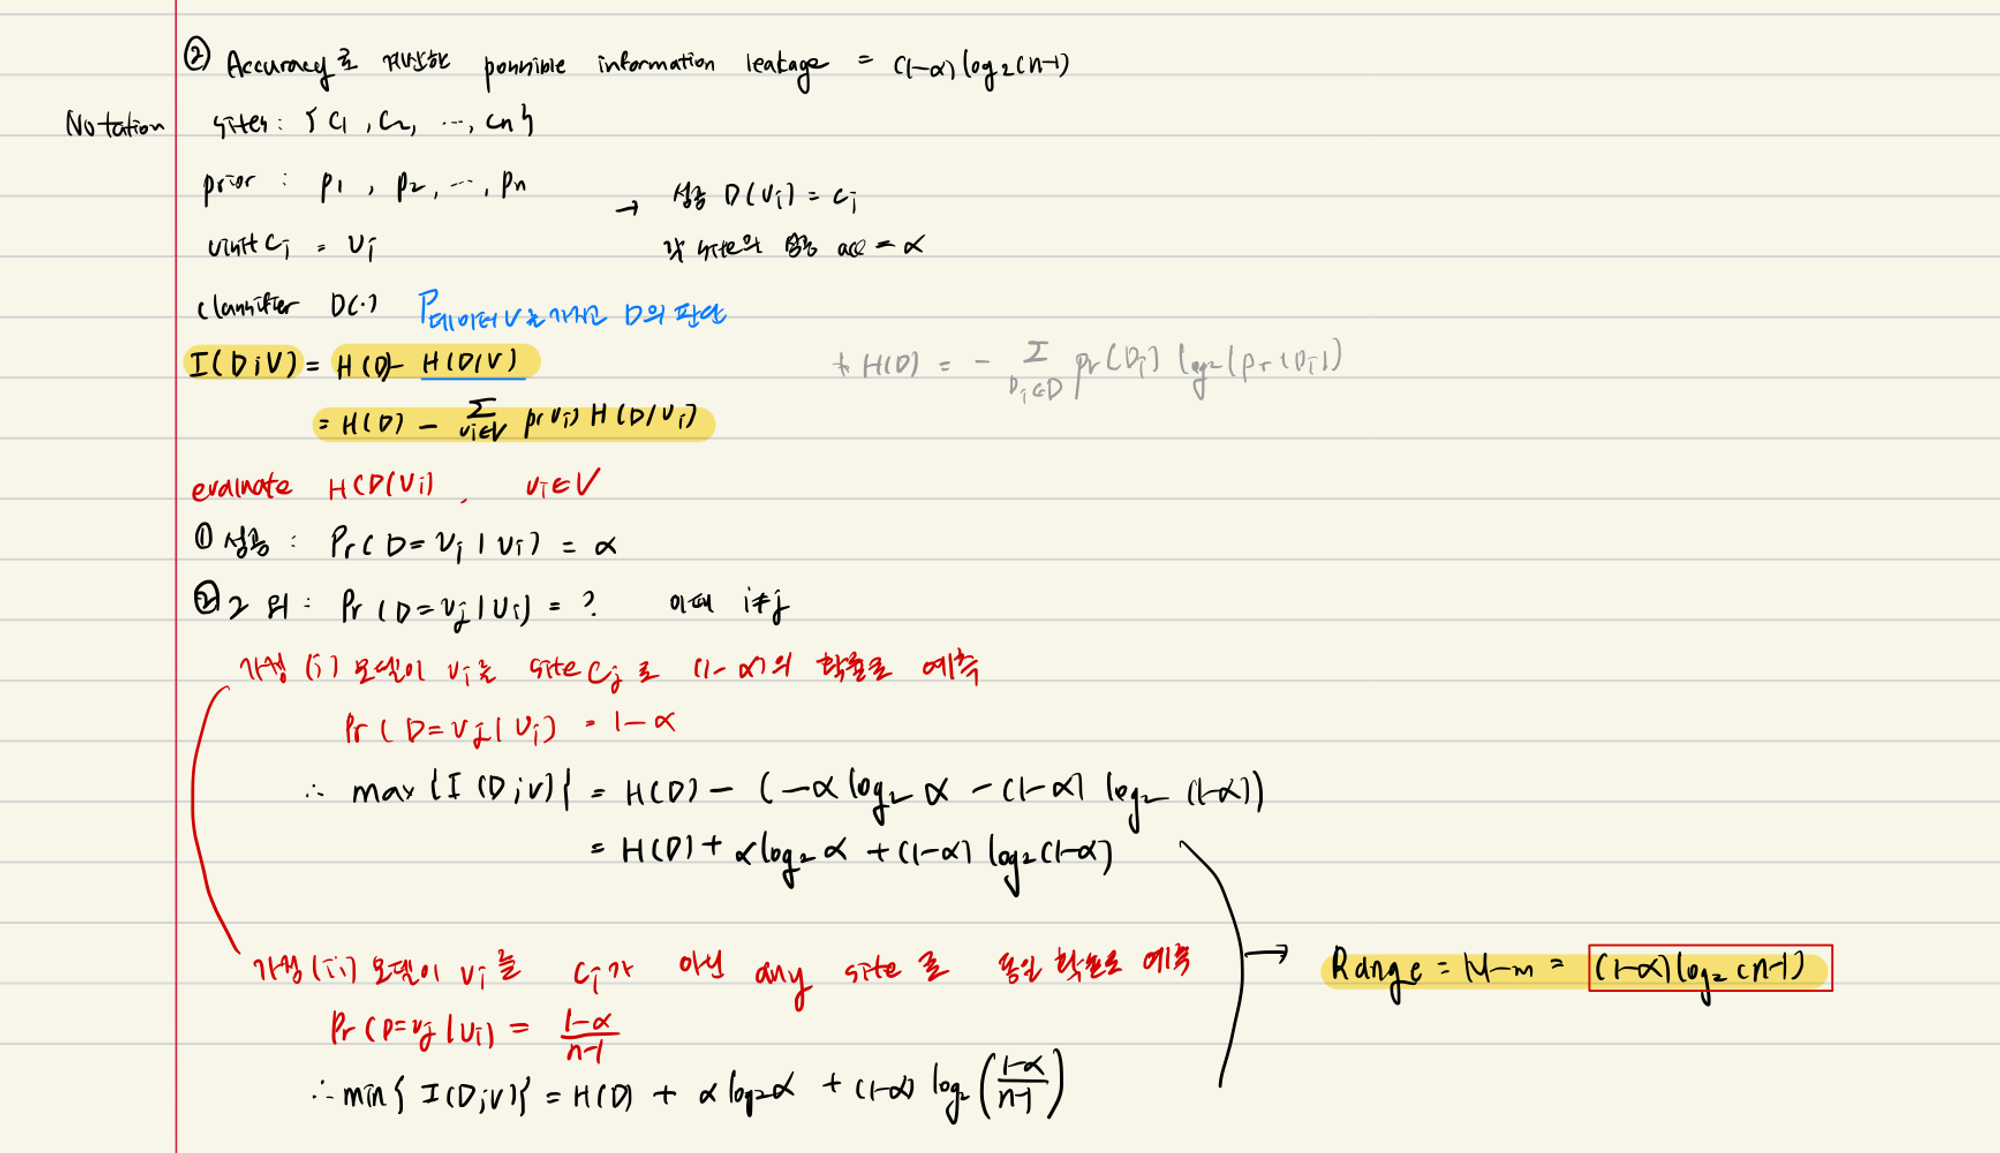 ② Accuracy로 계산한 possible information leakage = (1-α) log₂(n-1)
Notation sites : { C₁ , C₂, ..., Cn }
prior : p₁ , p₂, ..., pn
→ 성공 D(vᵢ) = cᵢ
visit cᵢ = vᵢ 각 site의 평균 acc = α
classifier D(·) P데이터 V를 가지고 D의 판단
I(D;V) = H(D) - H(D|V) * H(D) = - Σ Dᵢ∈D pr(Dᵢ) log₂(pr(Dᵢ))
= H(D) - Σ vᵢ∈V pr(vᵢ) H(D|vᵢ)
evaluate H(D|Vᵢ) , vᵢ∈V
① 성공 : Pr(D=vᵢ | vᵢ) = α
② 그 외 : Pr(D=vⱼ|vᵢ) = ? 이때 i≠j
가정 (i) 모델이 vᵢ를 site cⱼ로 (1-α)의 확률로 예측
Pr(D=vⱼ|vᵢ) = 1-α
∴ max{I(D;V)} = H(D) - (-α log₂ α - (1-α) log₂ (1-α))
= H(D) + α log₂ α + (1-α) log₂(1-α)
가정 (ii) 모델이 vᵢ를 cᵢ가 아닌 any site로 동일 확률로 예측
→ Range = M-m = (1-α) log₂(n-1)
Pr(D=vⱼ|vᵢ) = (1-α)/(n-1)
∴ min{I(D;V)} = H(D) + α log₂ α + (1-α) log₂((1-α)/(n-1))